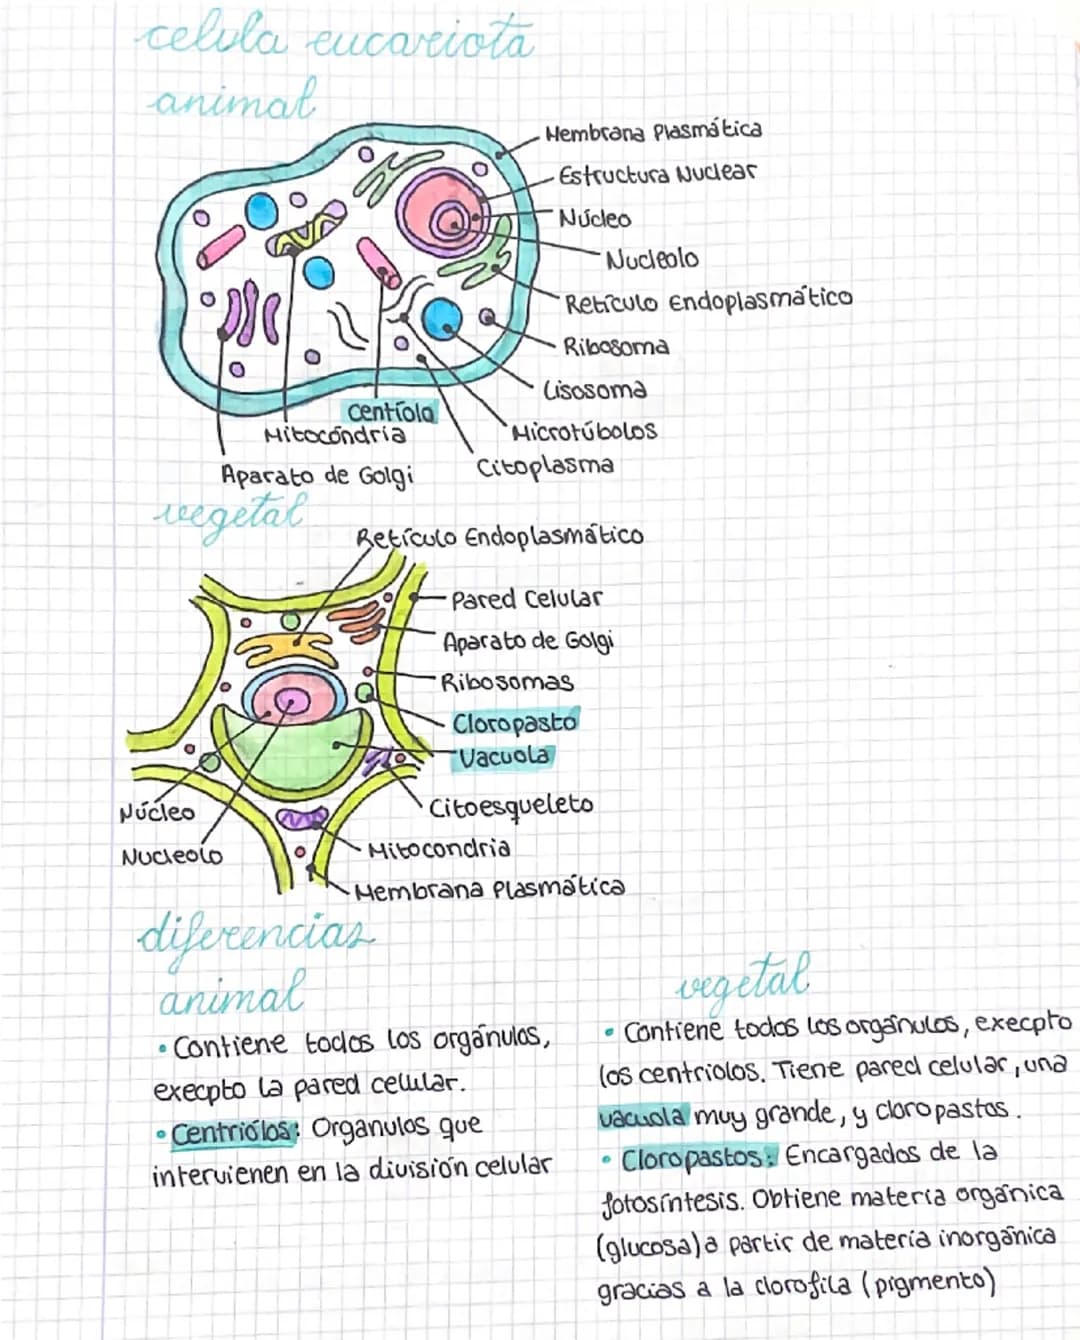 celula eucariota
animal
Membrana Plasmática
Estructura Nuclear
Núcleo
Nucleolo
Retículo Endoplasmático
Ribosoma
Lisosoma
Centíola
Mitocondria
Microtúbolos
Aparato de Golgi
Citoplasma
vegetal
Retículo Endoplasmático
Pared Celular
Aparato de Golgi
Ribosomas
Cloropasto
Vacuola
Núcleo
Citoesqueleto
Nucleolo
Mitocondria
Membrana Plasmática
diferencias
animal
• Contiene todos los orgánulos,
execpto la pared celular.
• Centriólos: Organulos que
intervienen en la división celular
vegetal
• Contiene todos los orgánulos, execpto
los centriolos. Tiene pared celular, una
vacuola muy grande, y cloropastos.
• Cloropastos: Encargados de la
fotosíntesis. Obtiene materia orgánica
(glucosa) a partir de materia inorgánica
gracias a la clorofila (pigmento)